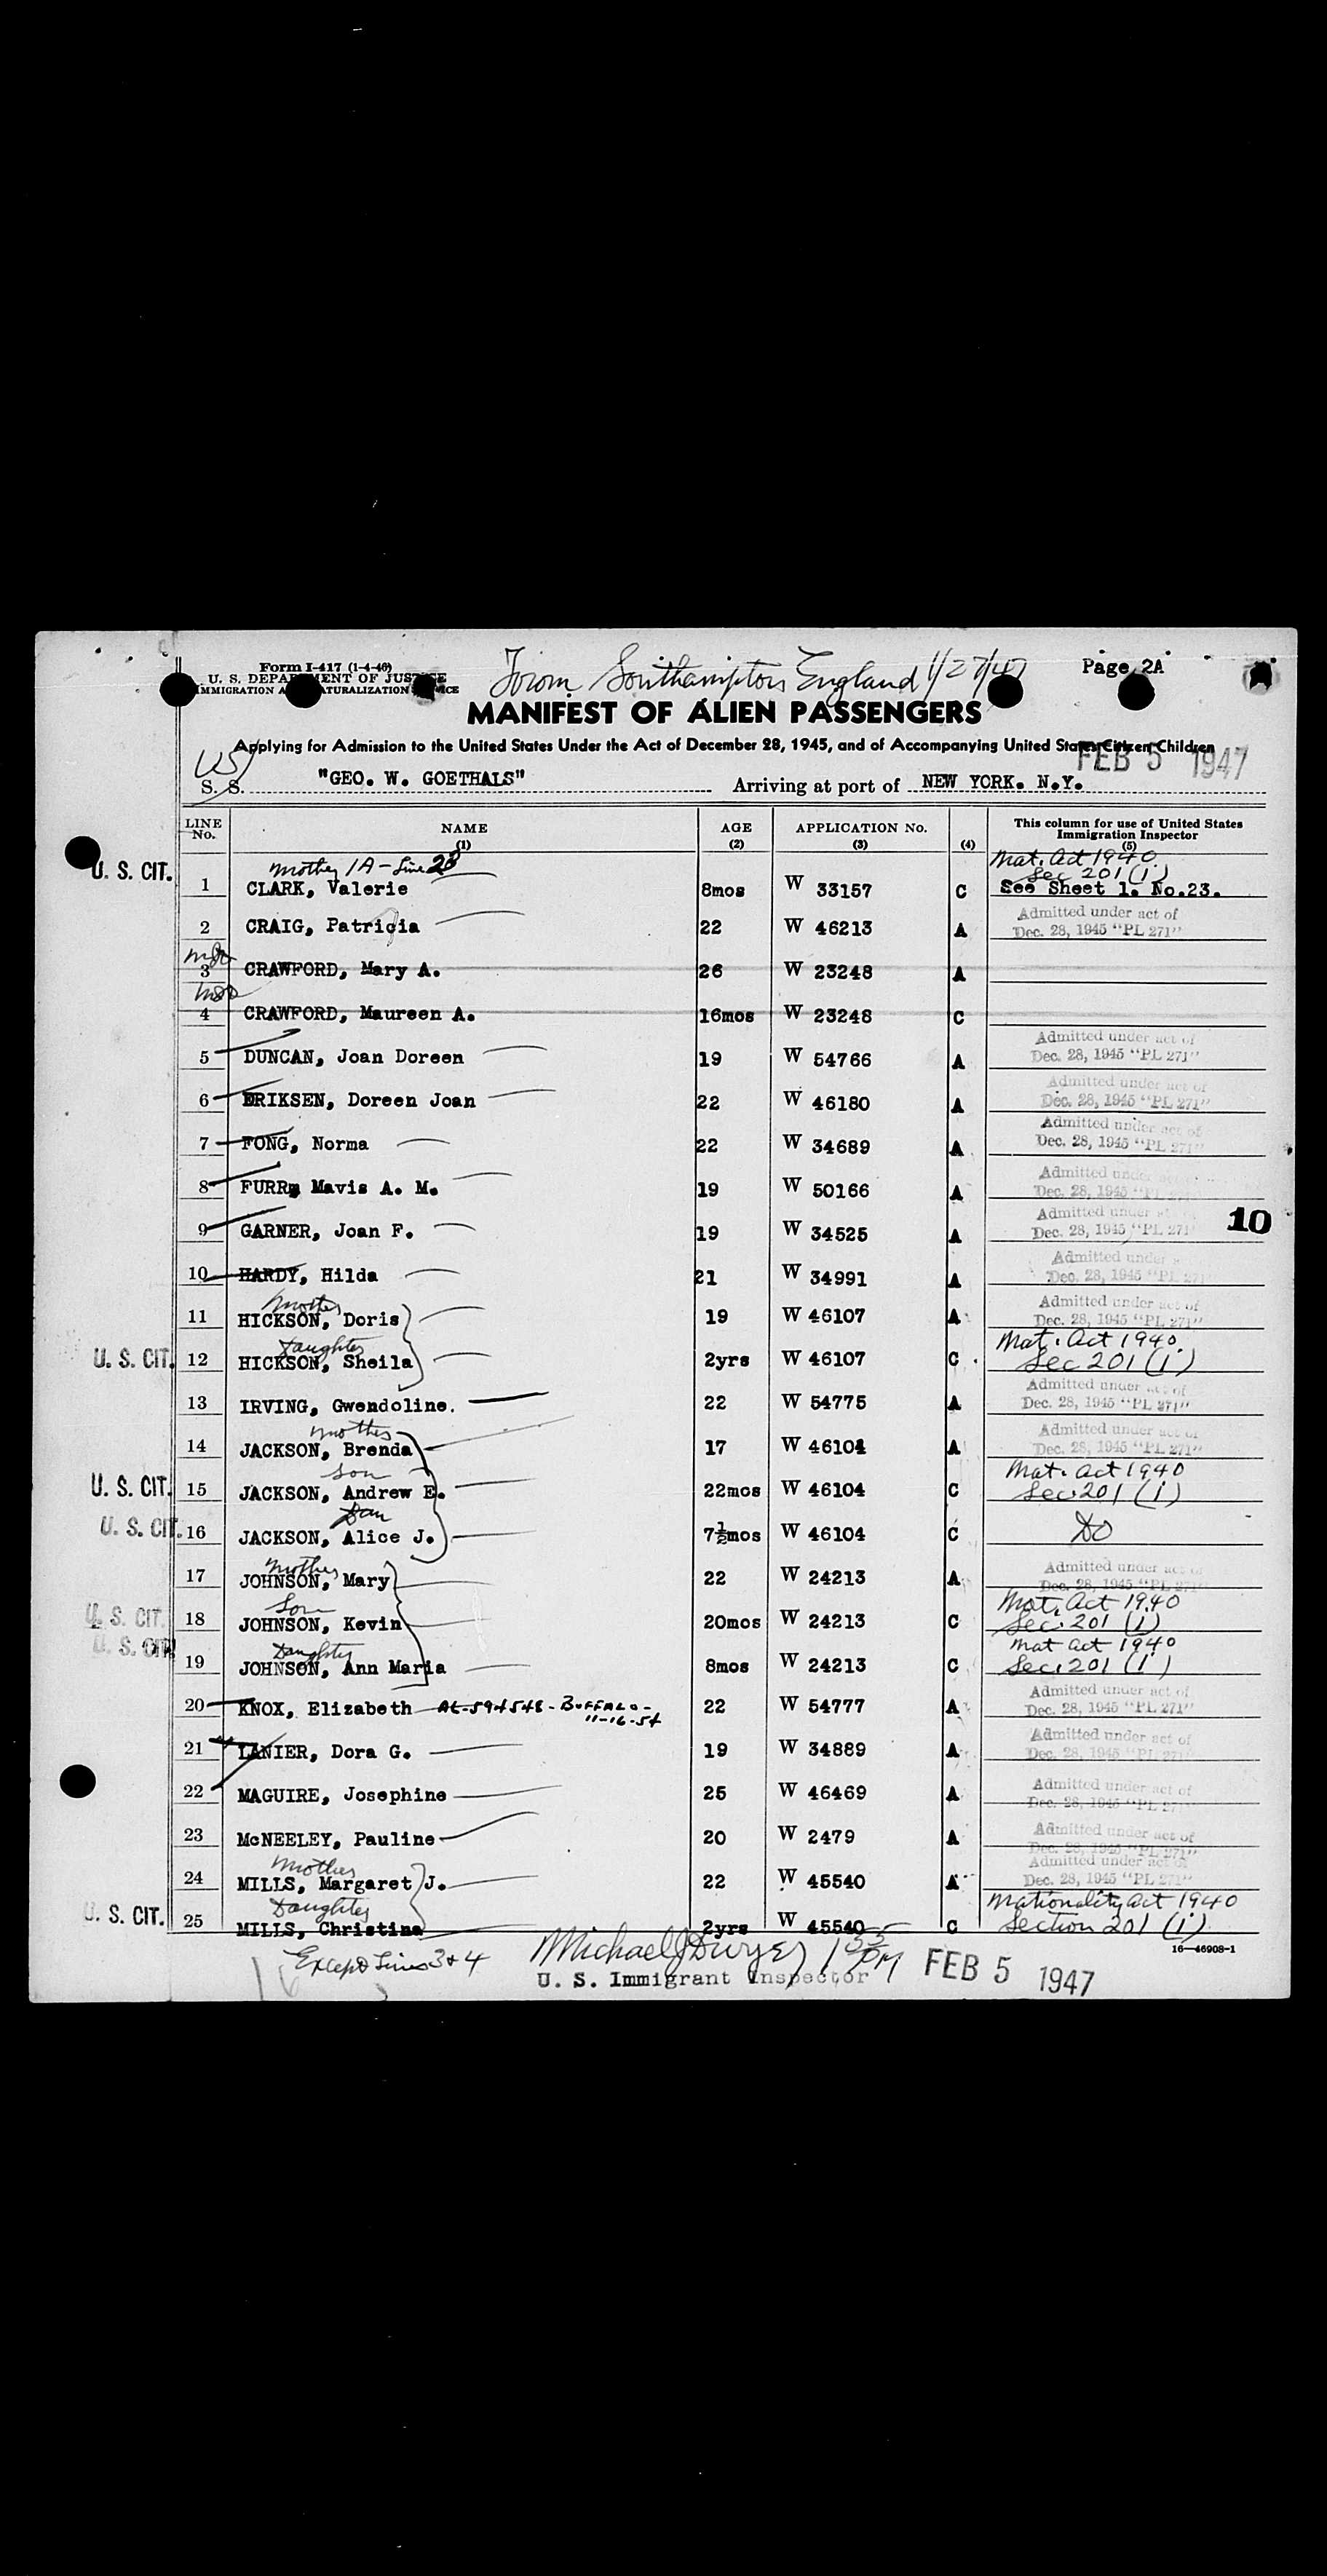 Form I-417 (1-4-46)
U. S. DEPARTMENT OF JUSTICE
IMMIGRATION NATURALIZATION
From Southampton England 1/27/47
Page 2A
MANIFEST OF ALIEN PASSENGERS
Applying for Admission to the United States Under the Act of December 28, 1945, and of Accompanying United States Citizen Children
FEB 5 1947
S. S. "GEO. W. GOETHALS" Arriving at port of NEW YORK. N.Y.
LINE No. NAME (1) AGE (2) APPLICATION No. (3) (4) This column for use of United States Immigration Inspector (5)
mother 1A - Line 28 Nat. Act 1940
Sec 201 (i)
U. S. CIT. 1 CLARK, Valerie 8mos W 33157 C See Sheet 1. No.23.
2 CRAIG, Patricia 22 W 46213 A Admitted under act of Dec. 28, 1945 "PL 271"
3 CRAWFORD, Mary A. 26 W 23248 A
4 CRAWFORD, Maureen A. 16mos W 23248 C
5 DUNCAN, Joan Doreen 19 W 54766 A Admitted under act of Dec. 28, 1945 "PL 271"
6 ERIKSEN, Doreen Joan 22 W 46180 A Admitted under act of Dec. 28, 1945 "PL 271"
7 FONG, Norma 22 W 34689 A Admitted under act of Dec. 28, 1945 "PL 271"
8 FURR, Mavis A. M. 19 W 50166 A Admitted under act of Dec. 28, 1945 "PL 271"
9 GARNER, Joan F. 19 W 34525 A Admitted under act of Dec. 28, 1945 "PL 271" 10
10 HARDY, Hilda 21 W 34991 A Admitted under a Dec. 28, 1945 "PL 271
mother
11 HICKSON, Doris 19 W 46107 A Admitted under act of Dec. 28, 1945 "PL 271"
Daughter Nat. Act 1940
U. S. CIT. 12 HICKSON, Sheila 2yrs W 46107 C Sec 201 (i)
13 IRVING, Gwendoline. 22 W 54775 A Admitted under act of Dec. 28, 1945 "PL 271"
mother
14 JACKSON, Brenda 17 W 46104 A Admitted under act of Dec. 28, 1945 "PL 271"
Son Nat. Act 1940
U. S. CIT. 15 JACKSON, Andrew E. 22mos W 46104 C Sec. 201 (i)
Dau
U. S. CIT. 16 JACKSON, Alice J. 7½mos W 46104 C Do
mother
17 JOHNSON, Mary 22 W 24213 A Admitted under act of Dec. 28, 1945 "PL 271"
Son Nat. Act 1940
U. S. CIT. 18 JOHNSON, Kevin 20mos W 24213 C Sec. 201 (i)
Daughter Nat Act 1940
U. S. CIT. 19 JOHNSON, Ann Maria 8mos W 24213 C Sec. 201 (i)
20 KNOX, Elizabeth AE-594548 - BUFFALO - 11-16-54 22 W 54777 A Admitted under act of Dec. 28, 1945 "PL 271"
21 LANIER, Dora G. 19 W 34889 A Admitted under act of Dec. 28, 1945 "PL 271"
22 MAGUIRE, Josephine 25 W 46469 A Admitted under act of Dec. 28, 1945 "PL 27
23 McNEELEY, Pauline 20 W 2479 A Admitted under act of Dec. 28, 1945 "PL 271"
mother
24 MILLS, Margaret J. 22 W 45540 A Admitted under act of Dec. 28, 1945 "PL 271"
Daughter Nationality Act 1940
U. S. CIT. 25 MILLS, Christina 2yrs W 45540 C Section 201 (i)
16—46908-1
Except Lines 3 & 4 Michael J Dwyer 1 55 PM FEB 5 1947
U. S. Immigrant Inspector